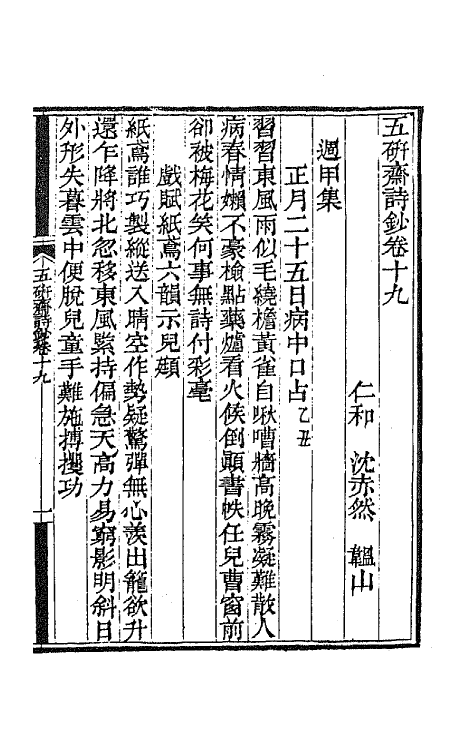 五硏齋詩鈔卷十九
仁和 沈赤然 韞山
週甲集
正月二十五日病中口占乙丑
習習東風雨似毛繞檐黃雀自啾嘈牆高晚霧凝難散人
病春情嬾不豪檢點藥爐看火候倒顛書帙任兒曹窗前
卻被梅花笑何事無詩付彩毫
戲賦紙鳶六韻示兒顓
紙鳶誰巧製縱送入晴空作勢疑驚彈無心羨出籠欲升
還乍降將北忽移東風緊持偏急天高力易窮影明斜日
外形失暮雲中便脫兒童手難施搏攫功
五硏齋詩鈔卷十九 一